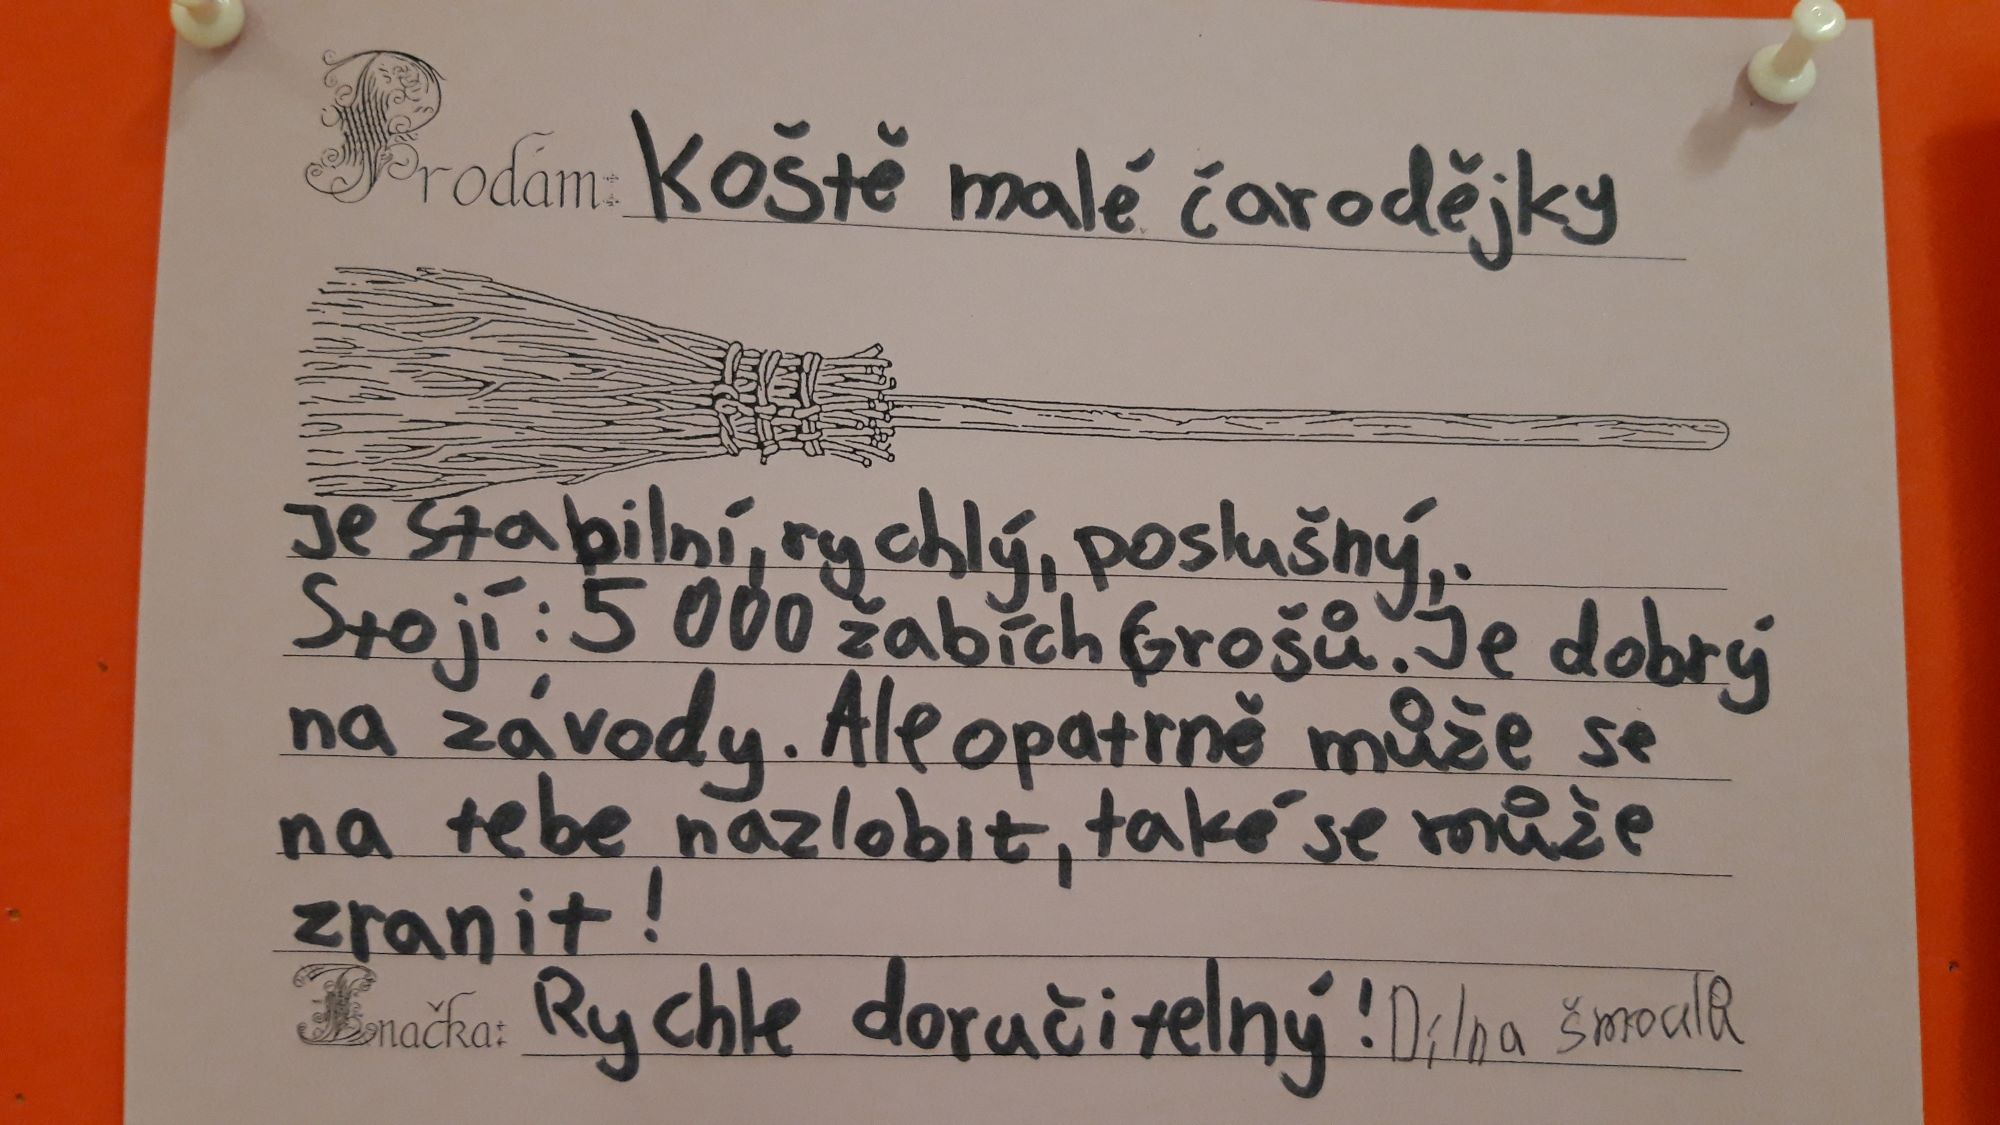 Prodám: Koště malé čarodějky
Je stabilní, rychlý, poslušný,.
Stojí: 5 000 žabích Grošů. Je dobrý
na závody. Ale opatrně může se
na tebe nazlobit, také se může
zranit!
Značka: Rychle doručitelný! Dílna šmoula